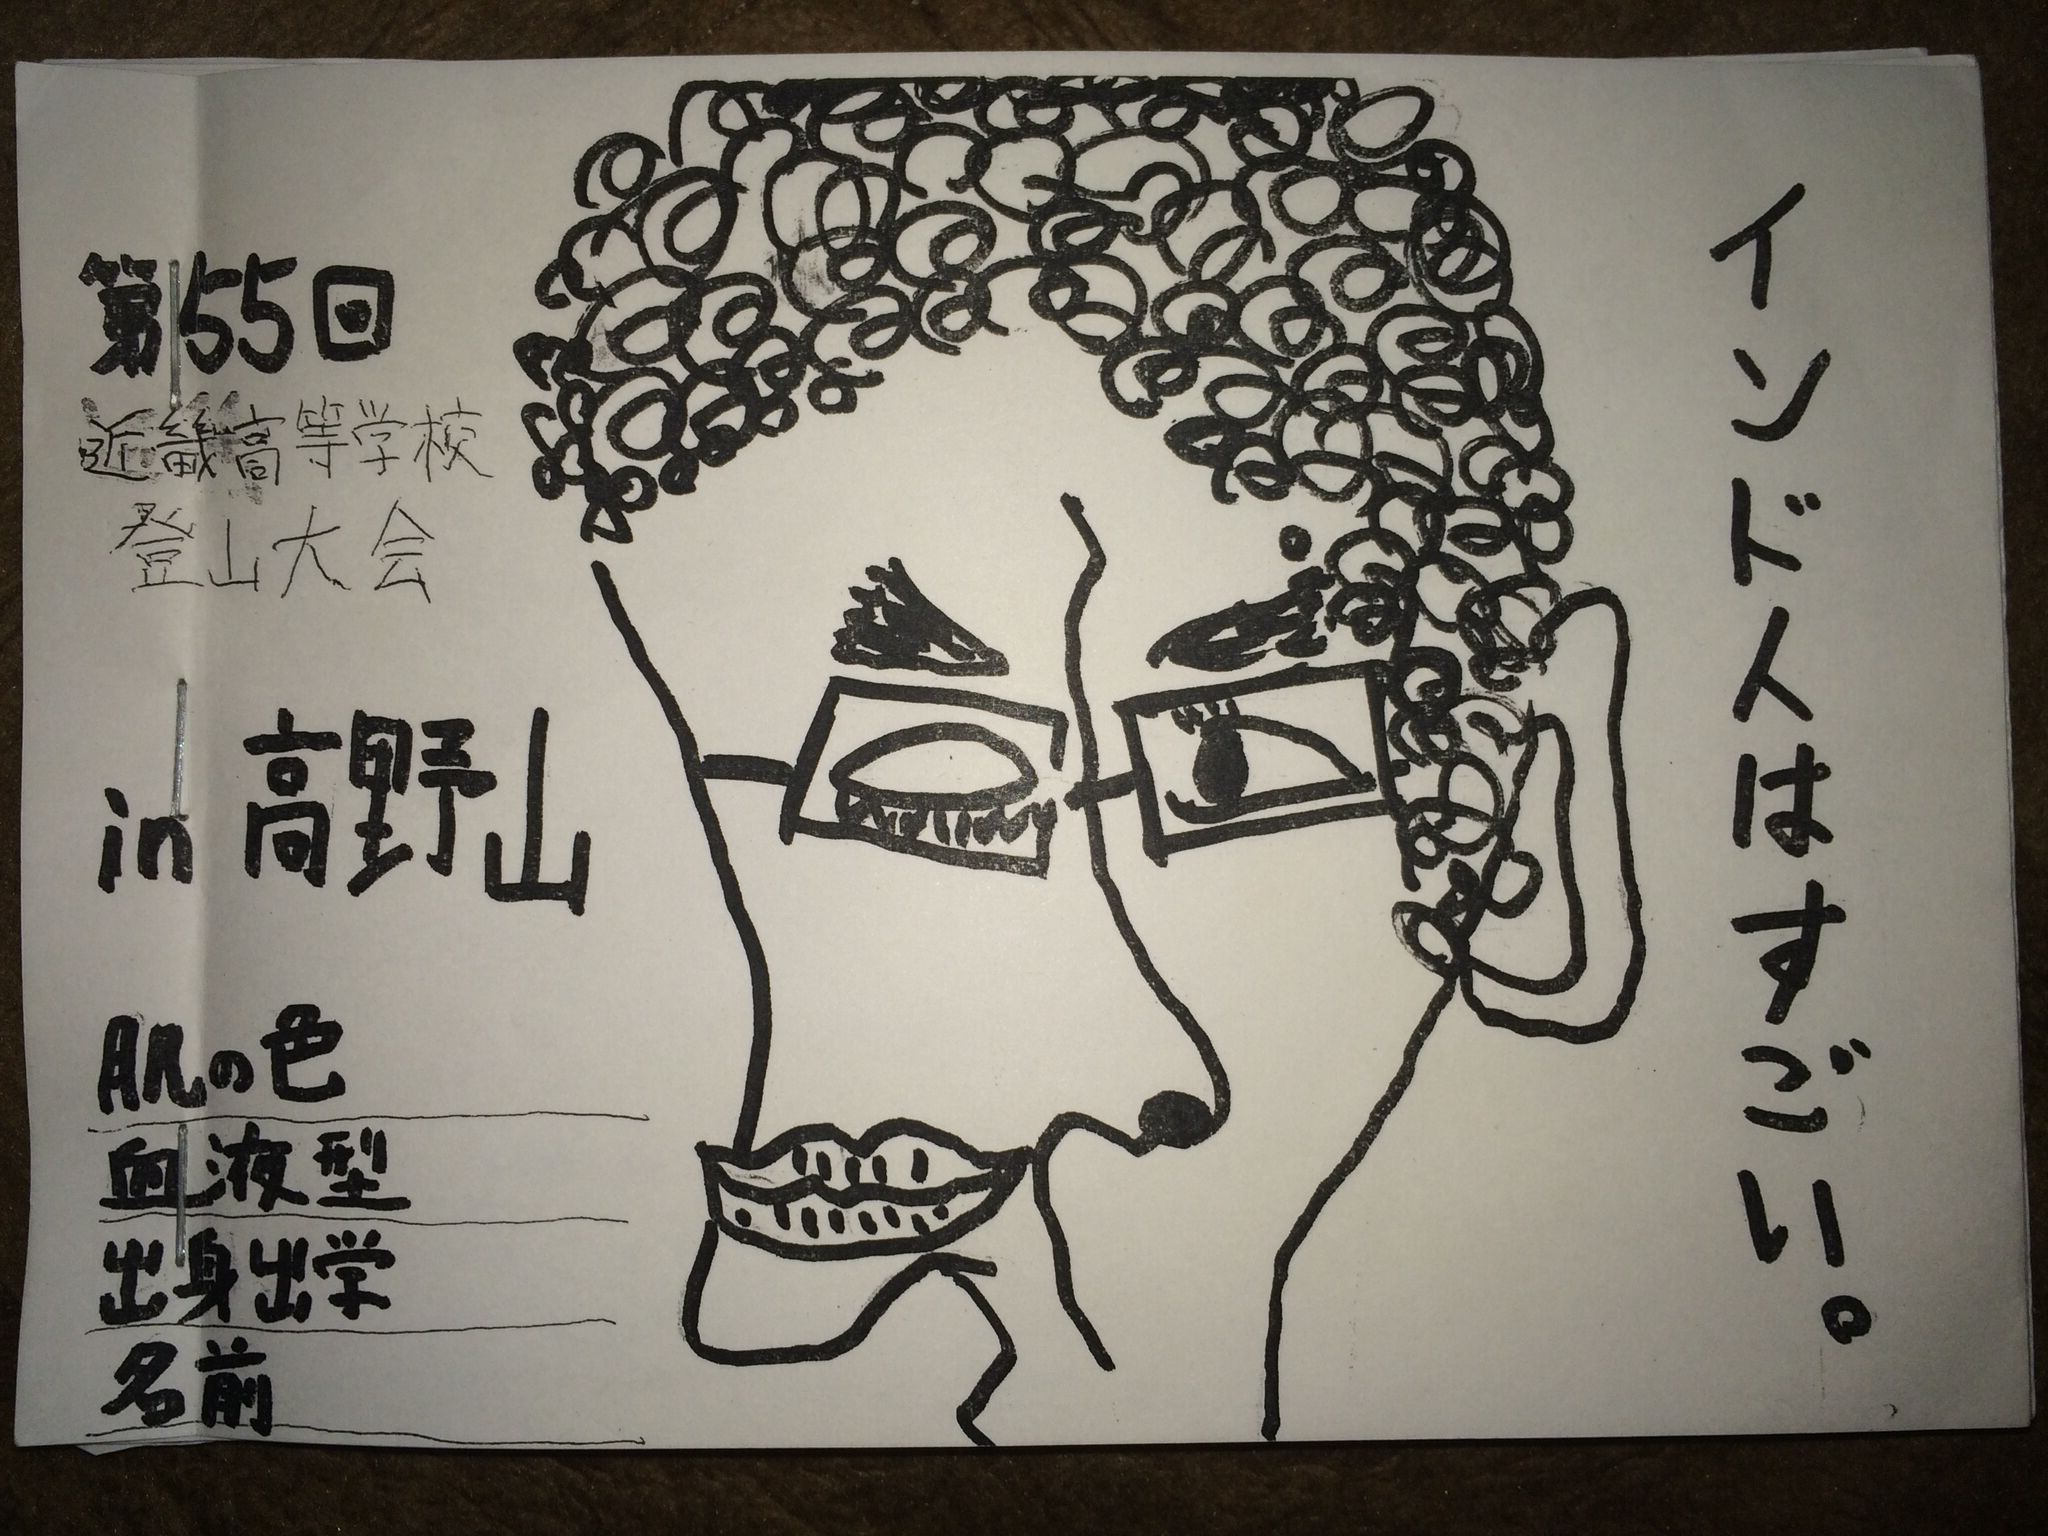 第55回
近畿高等学校
登山大会
in 高野山
肌の色
血液型
出身出学
名前
インド人はすごい。